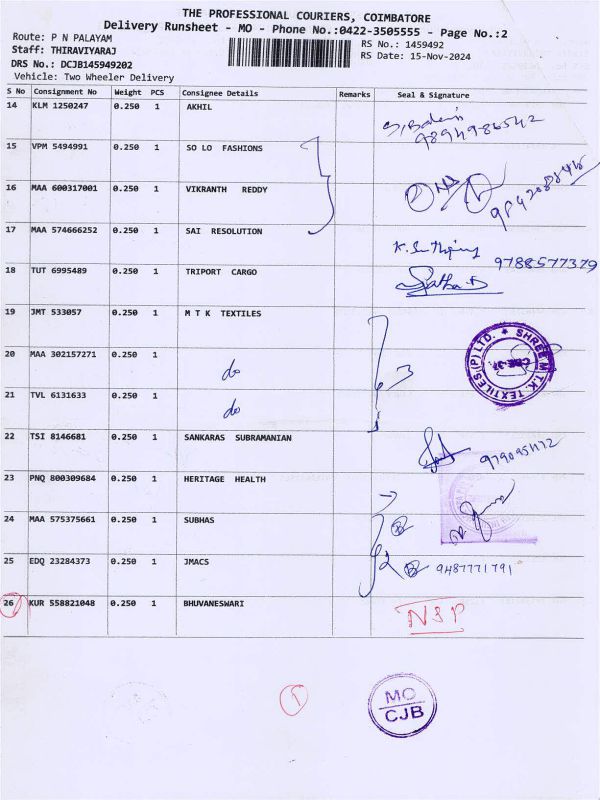 THE PROFESSIONAL COURIERS, COIMBATORE
Delivery Runsheet - MO - Phone No.:0422-3505555 - Page No.:2
Route: P N PALAYAM
RS No.: 1459492
Staff: THIRAVIYARAJ
RS Date: 15-Nov-2024
DRS No.: DCJB145949202
Vehicle: Two Wheeler Delivery
S No Consignment No Weight PCS Consignee Details Remarks Seal & Signature
14 KLM 1250247 0.250 1 AKHIL
9894986542
15 VPM 5494991 0.250 1 SO LO FASHIONS
16 MAA 600317001 0.250 1 VIKRANTH REDDY
17 MAA 574666252 0.250 1 SAI RESOLUTION
9788577379
18 TUT 6995489 0.250 1 TRIPORT CARGO
19 JMT 533057 0.250 1 M T K TEXTILES
SHREE M.T.K. TEXTILES (P) LTD.
20 MAA 302157271 0.250 1 do
3
21 TVL 6131633 0.250 1 do
22 TSI 8146681 0.250 1 SANKARAS SUBRAMANIAN
23 PNQ 800309684 0.250 1 HERITAGE HEALTH
24 MAA 575375661 0.250 1 SUBHAS
25 EDQ 23284373 0.250 1 JMACS
2
9487771791
26 KUR 558821048 0.250 1 BHUVANESWARI
NSP
1
MO
CJB